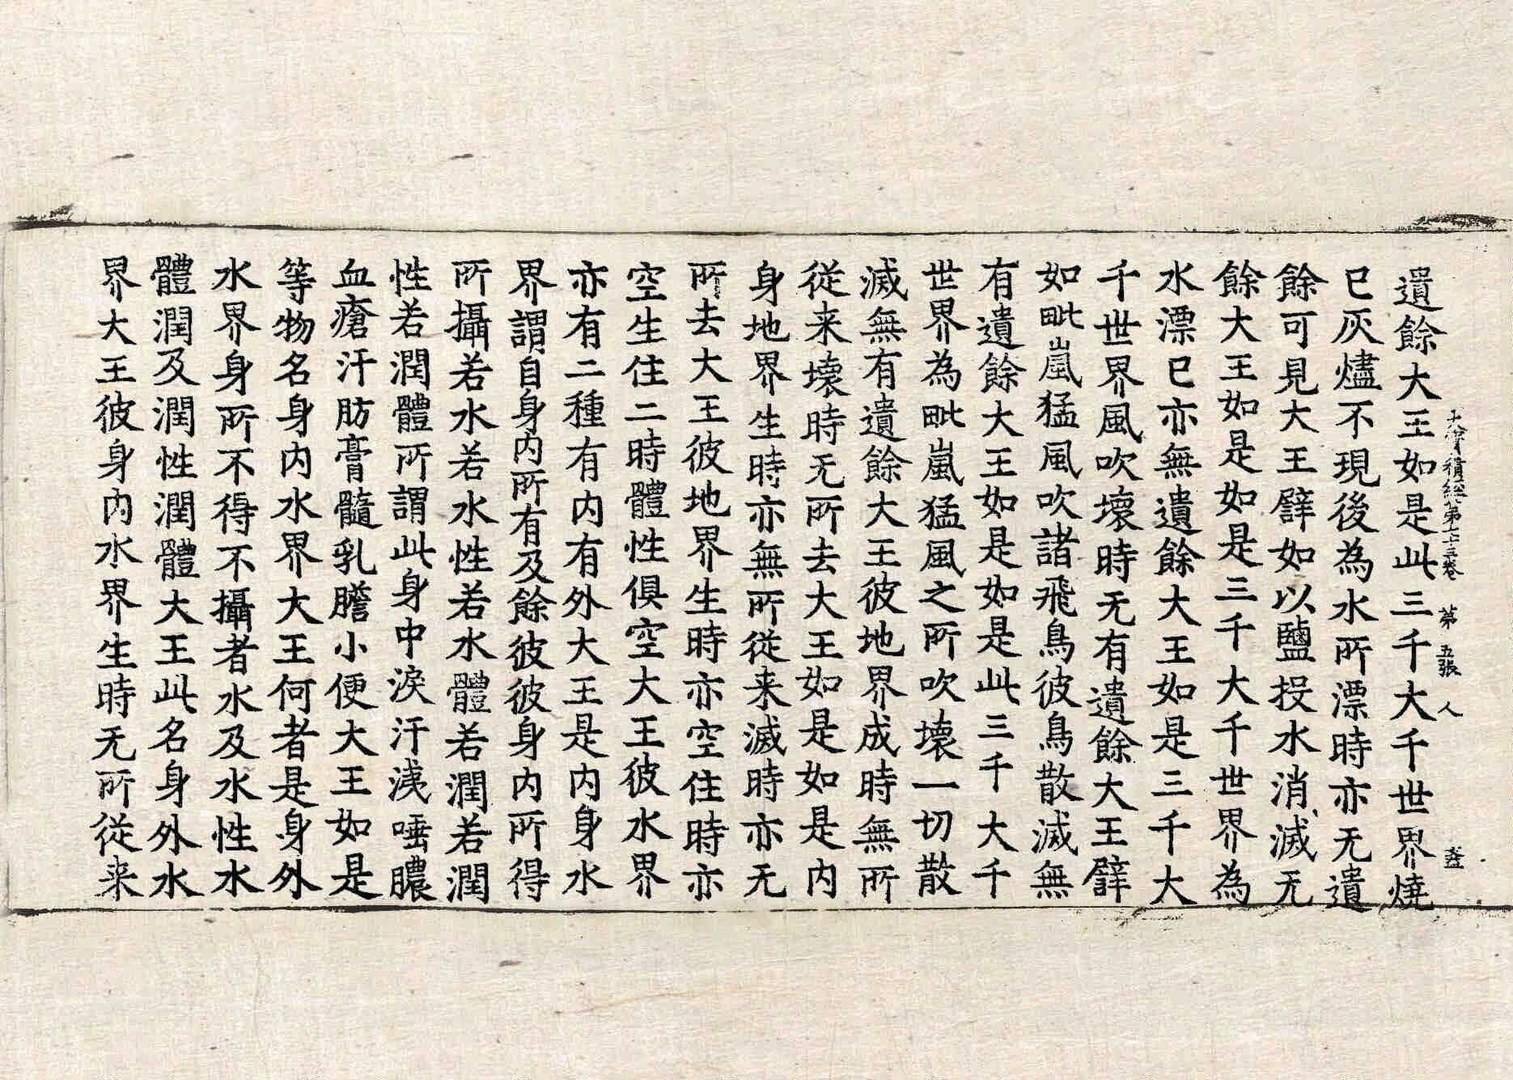 大寶積經第七十三卷 第五張 人 盖
遺餘大王如是此三千大千世界燒
已灰燼不現後為水所漂時亦无遺
餘可見大王譬如以鹽投水消滅无
餘大王如是如是三千大千世界為
水漂已亦無遺餘大王如是三千大
千世界風吹壞時无有遺餘大王譬
如毗嵐猛風吹諸飛鳥彼鳥散滅無
有遺餘大王如是如是此三千大千
世界為毗嵐猛風之所吹壞一切散
滅無有遺餘大王彼地界成時無所
從来壞時无所去大王如是如是内
身地界生時亦無所從来滅時亦无
所去大王彼地界生時亦空住時亦
空生住二時體性俱空大王彼水界
亦有二種有内有外大王是内身水
界謂自身内所有及餘彼彼身内所得
所攝若水若水性若水體若潤若潤
性若潤體所謂此身中淚汗洟唾膿
血瘡汗肪膏髓乳膽小便大王如是
等物名身内水界大王何者是身外
水界身所不得不攝者水及水性水
體潤及潤性潤體大王此名身外水
界大王彼身内水界生時无所從来